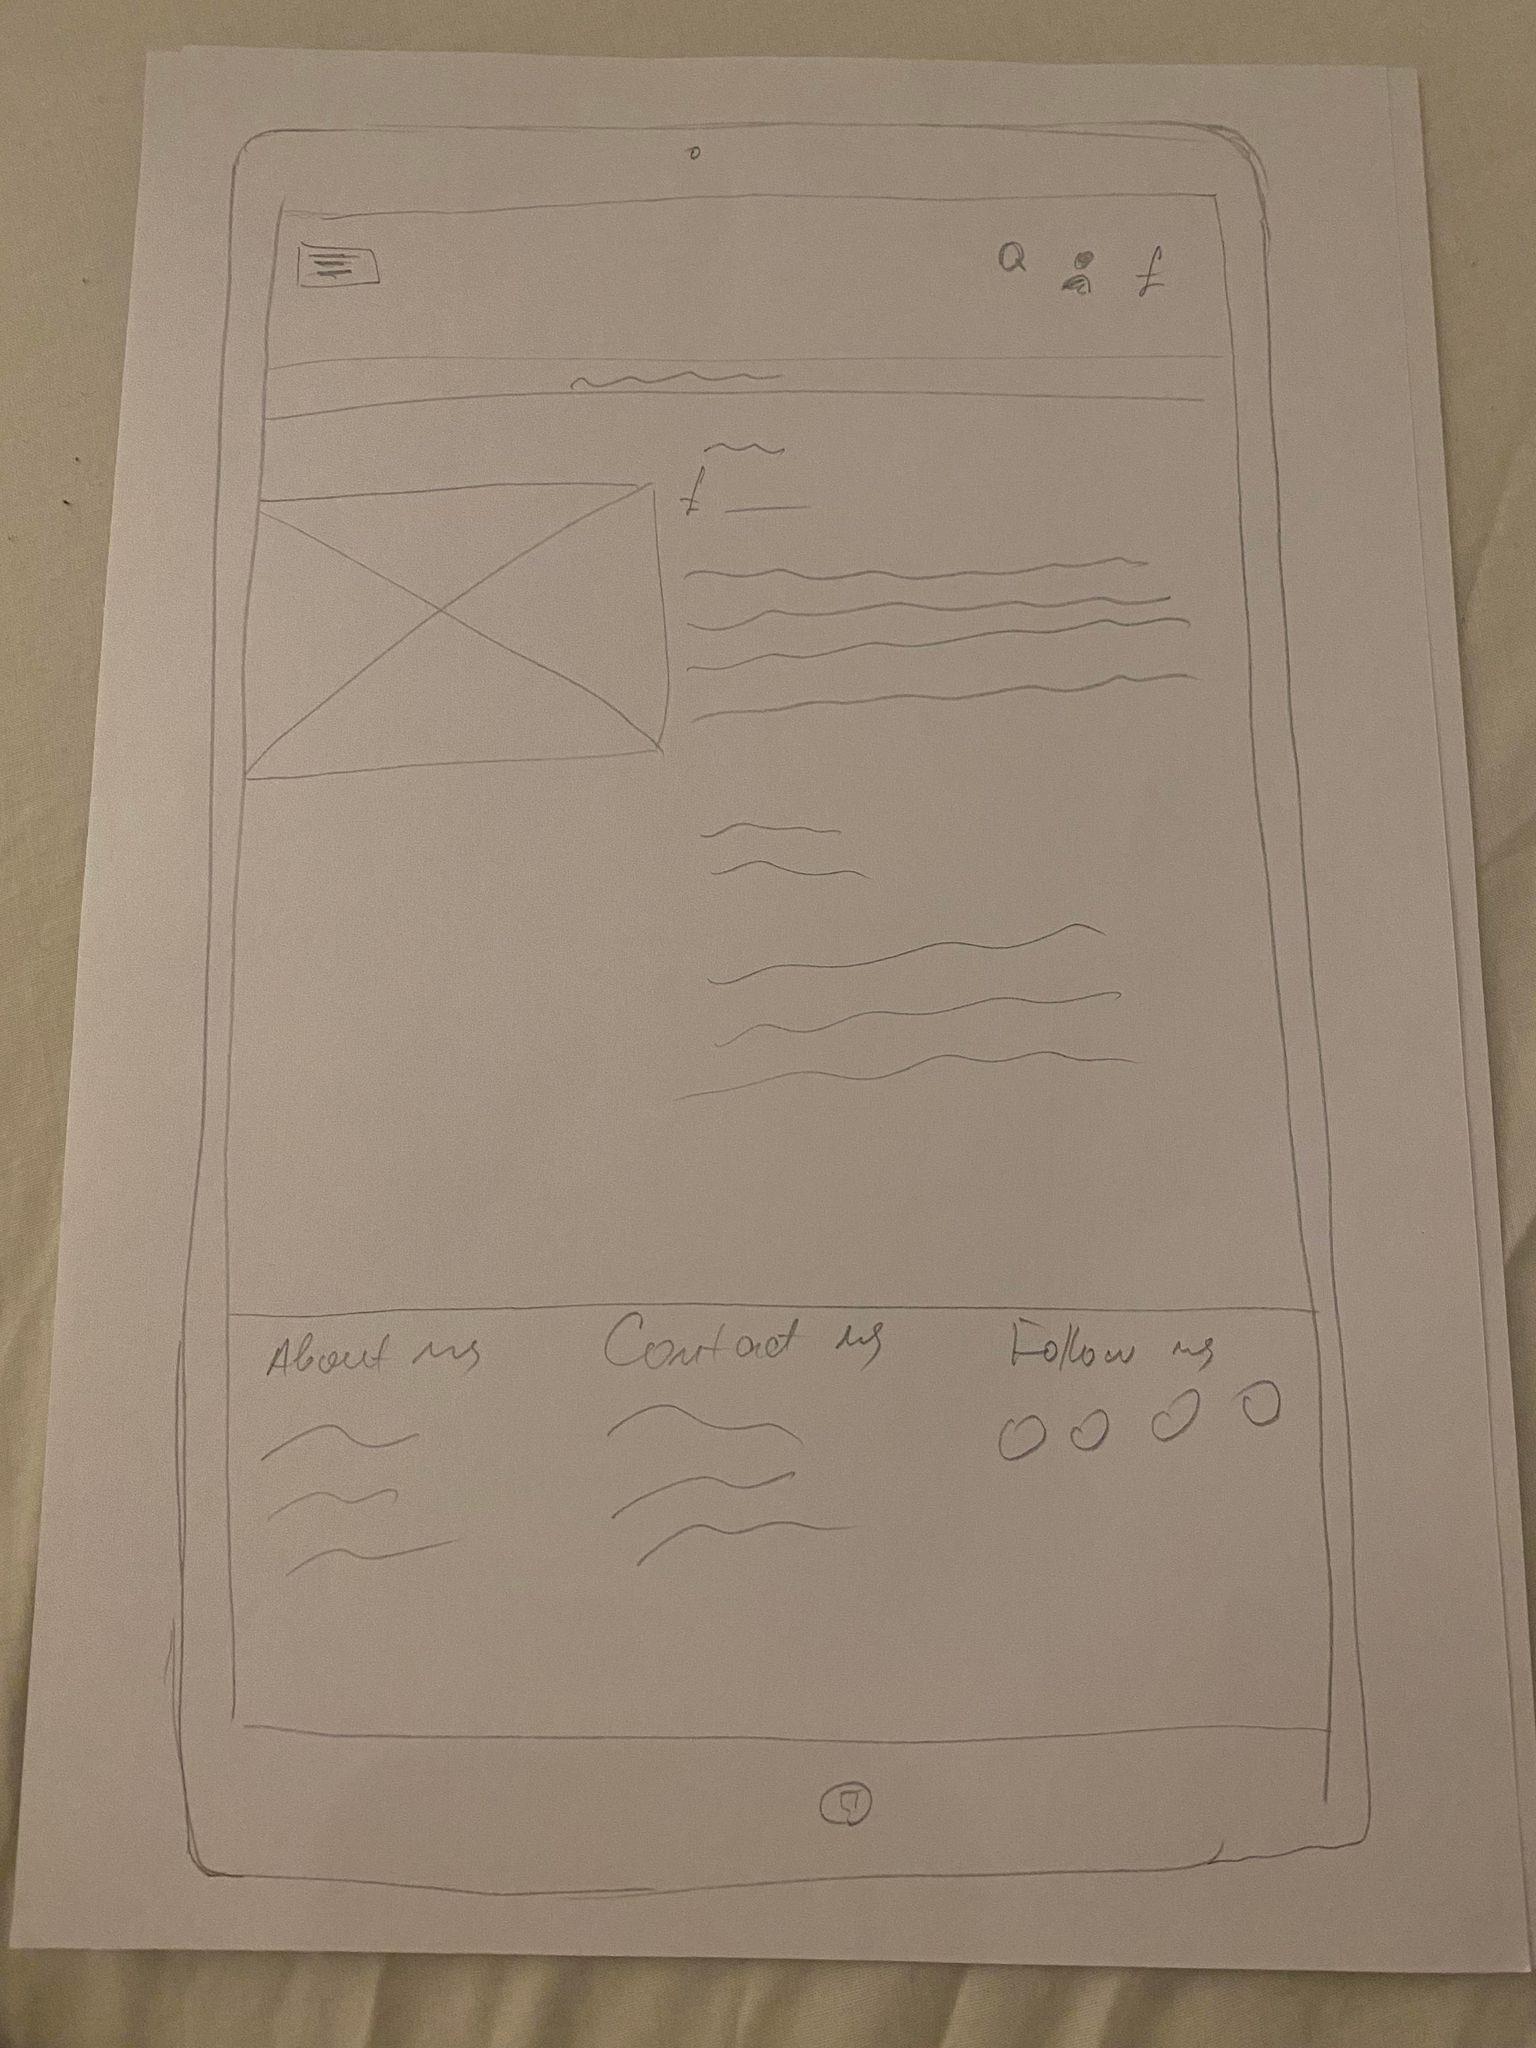 £
£
About us
Contact us
Follow us